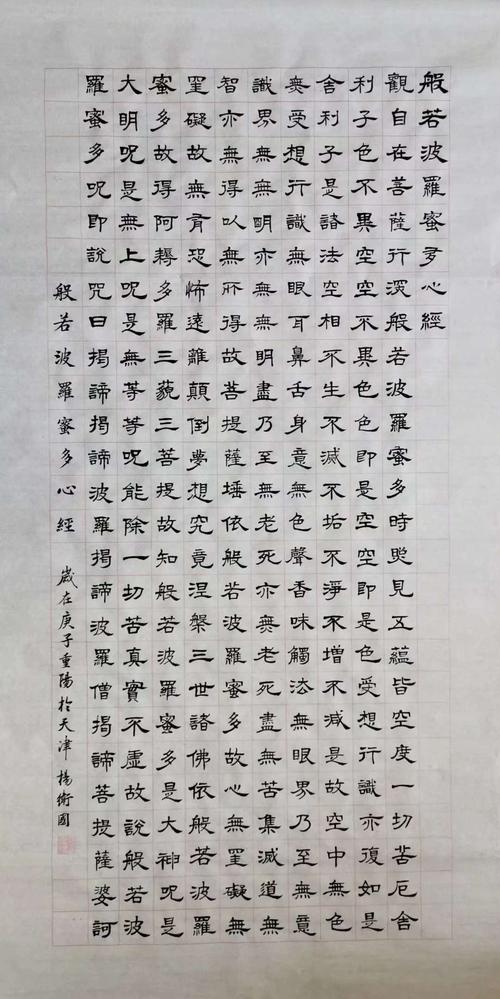 般若波羅蜜多心經
觀自在菩薩行深般若波羅蜜多時照見五蘊皆空度一切苦厄舍
利子色不異空空不異色色即是空空即是色受想行識亦復如是
舍利子是諸法空相不生不滅不垢不淨不增不減是故空中無色
無受想行識無眼耳鼻舌身意無色聲香味觸法無眼界乃至無意
識界無無明亦無無明盡乃至無老死亦無老死盡無苦集滅道無
智亦無得以無所得故菩提薩埵依般若波羅蜜多故心無罣礙無
罣礙故無有恐怖遠離顛倒夢想究竟涅槃三世諸佛依般若波羅
蜜多故得阿耨多羅三藐三菩提故知般若波羅蜜多是大神呪是
大明呪是無上呪是無等等呪能除一切苦真實不虛故說般若波
羅蜜多呪即說咒曰揭諦揭諦波羅揭諦波羅僧揭諦菩提薩婆訶
般若波羅蜜多心經 歲在庚子重陽於天津 楊衛國